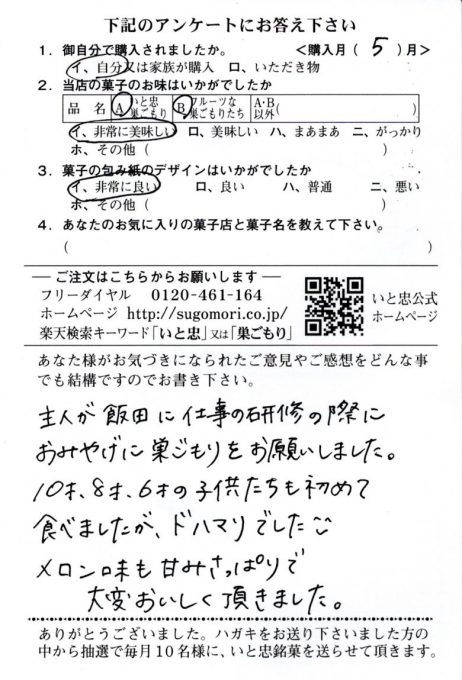 下記のアンケートにお答え下さい
1. 御自分で購入されましたか。 <購入月( 5 )月>
イ、自分又は家族が購入 ロ、いただき物
2. 当店の菓子のお味はいかがでしたか
品名 A いと忠巣ごもり B フルーツな巣ごもりたち A・B以外( )
イ、非常に美味しい ロ、美味しい ハ、まあまあ ニ、がっかり
ホ、その他( )
3. 菓子の包み紙のデザインはいかがでしたか
イ、非常に良い ロ、良い ハ、普通 ニ、悪い
ホ、その他( )
4. あなたのお気に入りの菓子店と菓子名を教えて下さい。
( )
― ご注文はこちらからお願いします ―
フリーダイヤル 0120-461-164
ホームページ http://sugomori.co.jp/
楽天検索キーワード「いと忠」又は「巣ごもり」
いと忠公式
ホームページ
あなた様がお気づきになられたご意見やご感想をどんな事
でも結構ですのでお書き下さい。
主人が飯田に仕事の研修の際に
おみやげに巣ごもりをお願いしました。
10才、8才、6才の子供たちも初めて
食べましたが、ドハマリでした
メロン味も甘みさっぱりで
大変おいしく頂きました。
ありがとうございました。ハガキをお送り下さいました方の
中から抽選で毎月10名様に、いと忠銘菓を送らせて頂きます。